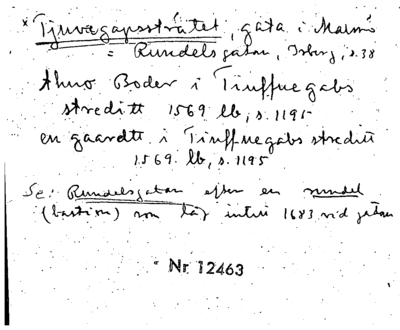 * Tjuvegapsstrátet, gata i Malmö
= Rundelsgatan, Isberg, s.38
Boder i Tiuffuegabs
streditt 1569 lb, s. 1195
en gaardtt i Tiuffuegabs streditt
1569. lb, s. 1195
Se: Rundelsgatan efter en rundel
(bastion) som låg intill 1683 vid gatan
Nr 12463